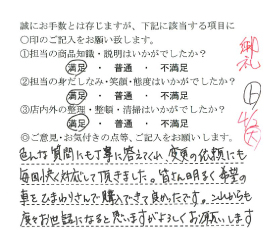 誠にお手数とは存じますが、下記に該当する項目に
〇印のご記入をお願い致します。
①担当の商品知識・説明はいかがでしたか？
満足 ・ 普通 ・ 不満足
②担当の身だしなみ・笑顔・態度はいかがでしたか？
満足 ・ 普通 ・ 不満足
③店内外の整理・整頓・清掃はいかがでしたか？
満足 ・ 普通 ・ 不満足
◎ご意見・お気付きの点等、ご記入をお願いします。
色んな質問にも丁寧に答えてくれ、変更の依頼にも
毎回快く対応して頂きました。皆さん明るく希望の
車をひまわりさんで購入できて良かったです。これからも
度々お世話になると思いますがよろしくお願いします
御礼
上
4/6